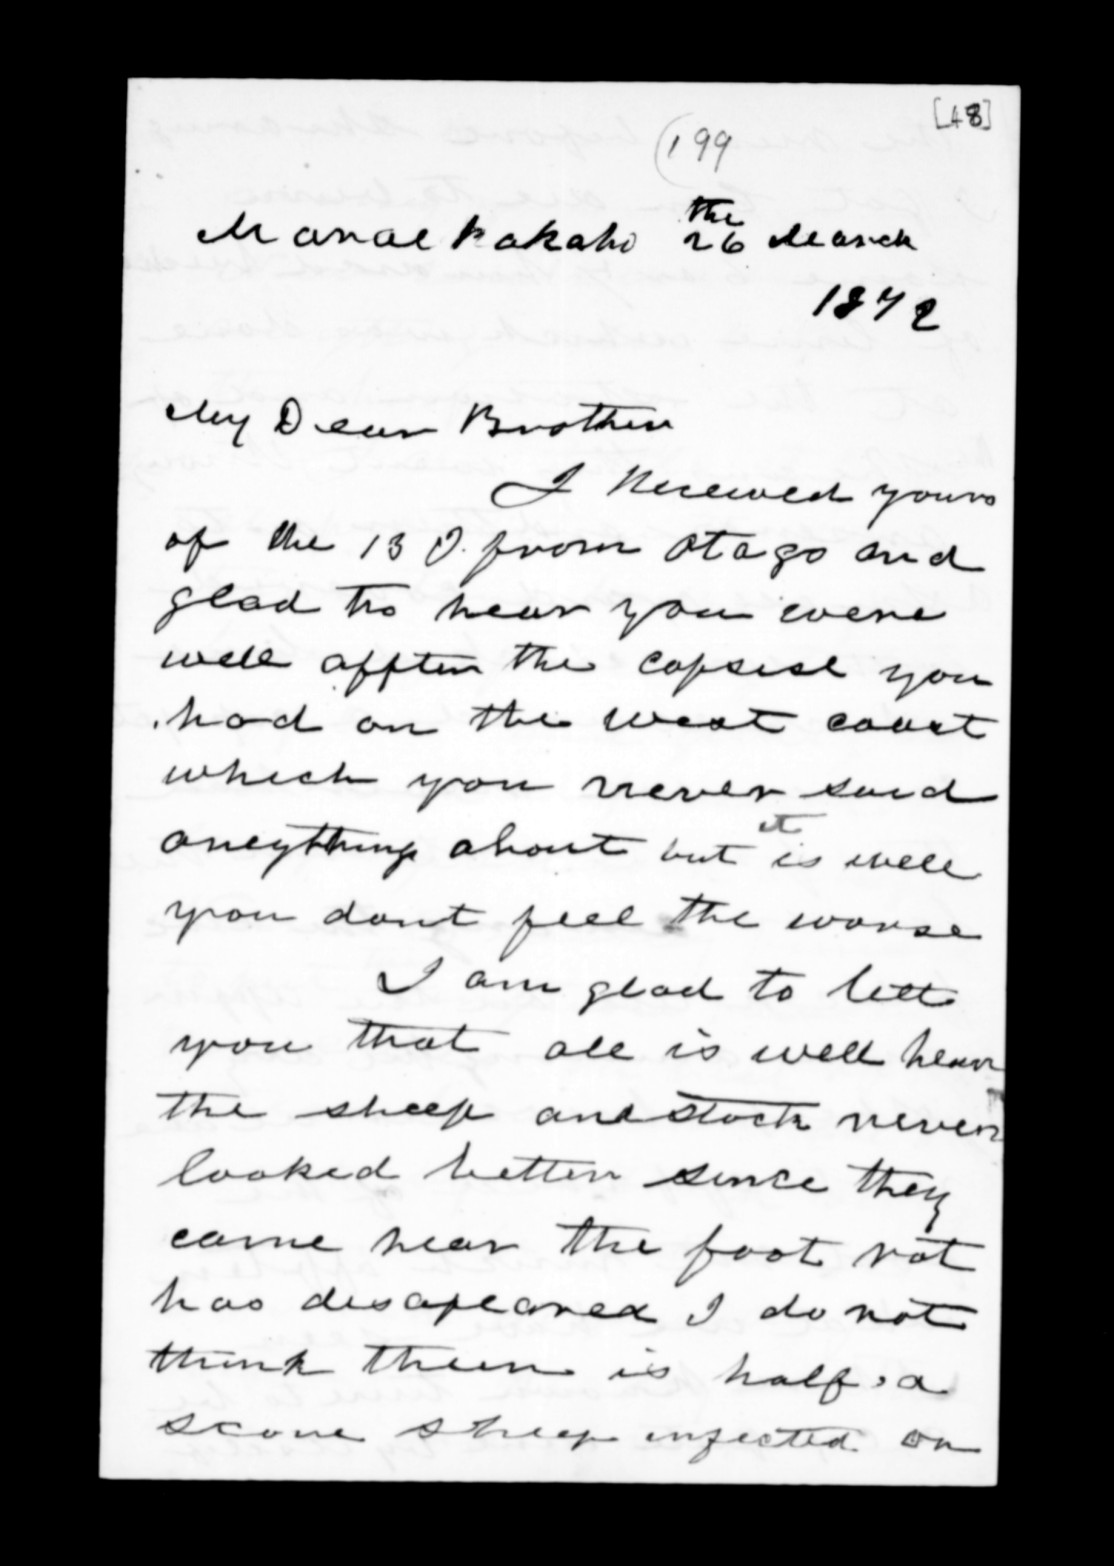 [48]
(199
Maraekakaho the 26 March
1872
My Dear Brother
I Received yours
of the 13 from Otago and
glad to hear you were
well affter the capsise you
had on the west coast
which you never said
aneything about but it is well
you dont feel the worse
I am glad to lett
you that all is well hear
the sheep and stock never
looked better since they
came hear the foot rot
has disapeared I do not
think theer is half a
scour sheep infected on